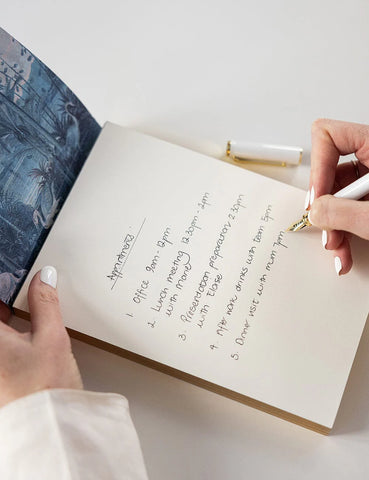 Appointments
1. Office 9am - 12pm
2. Lunch meeting 12:30pm - 2pm
with Mandy
3. Presentation preparation 2:30pm
with
4. After work drinks with team 5pm
5. Dinner visit with mum 7pm